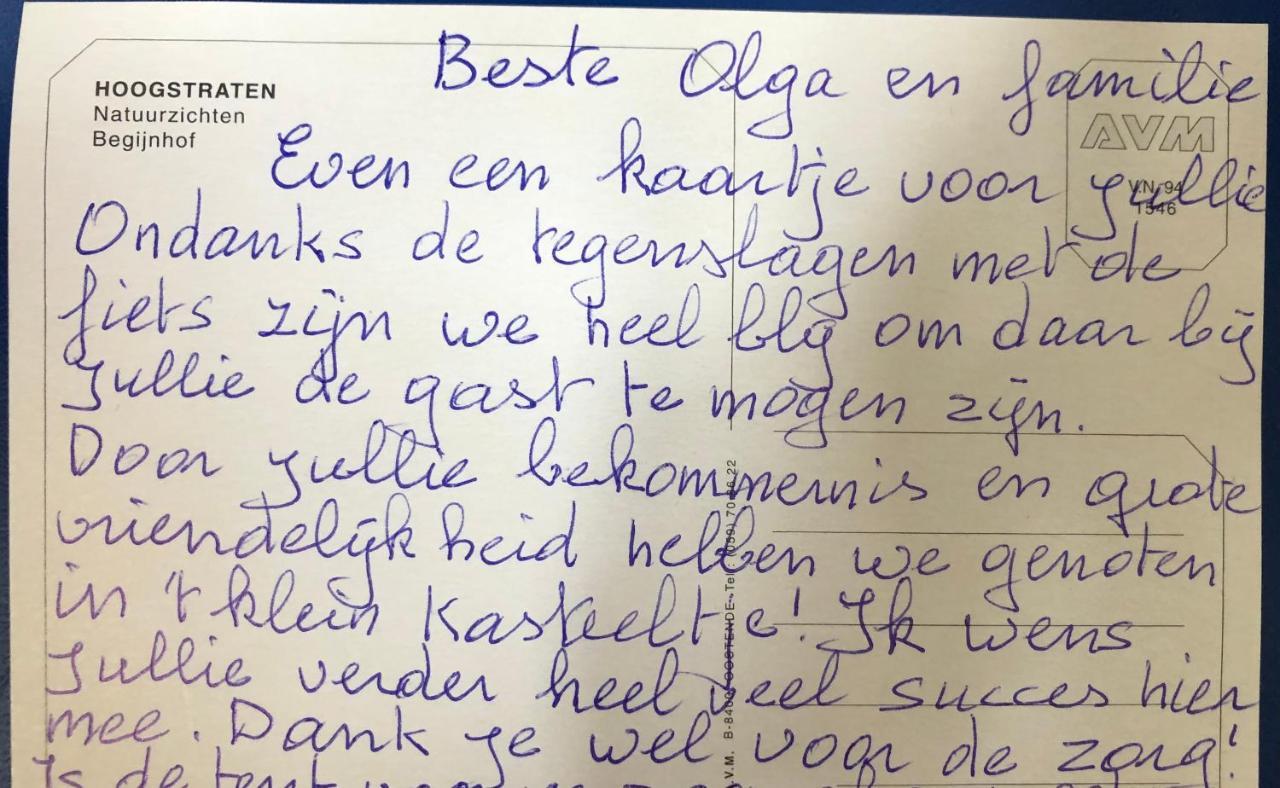 HOOGSTRATEN
Natuurzichten
Begijnhof
AVM
V.N. 94
1546
Beste Olga en familie
Even een kaartje voor jullie
Ondanks de tegenslagen met de
fiets zijn we heel blij om daar bij
jullie de gast te mogen zijn.
Door jullie bekommernis en grote
vriendelijkheid hebben we genoten
in 't klein Kasteeltje! Ik wens
jullie verder heel veel succes hier
mee. Dank je wel voor de zorg!
Is de tent
A.V.M. B-8400 OOSTENDE - Tel.: (059) 70 22